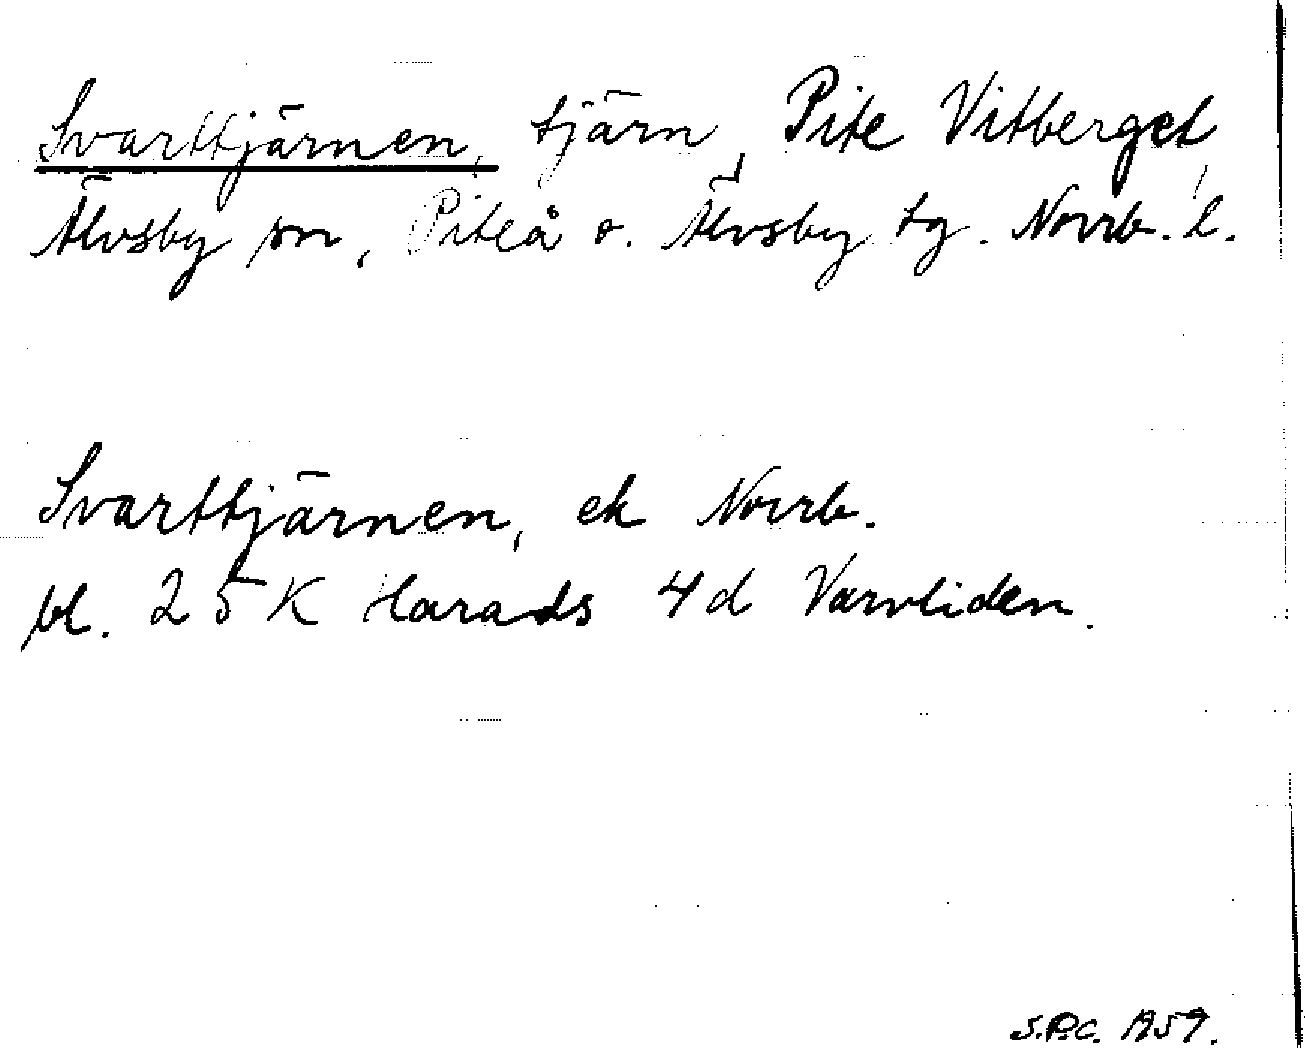 Svarttjärnen, tjärn, Pite Vitberget,
Älvsby sn, Piteå o. Älvsby tg. Norrb. l.
Svarttjärnen, ek Norrb.
bl. 25 K Harads 4d Varvliden.
S.P.C. 1959.